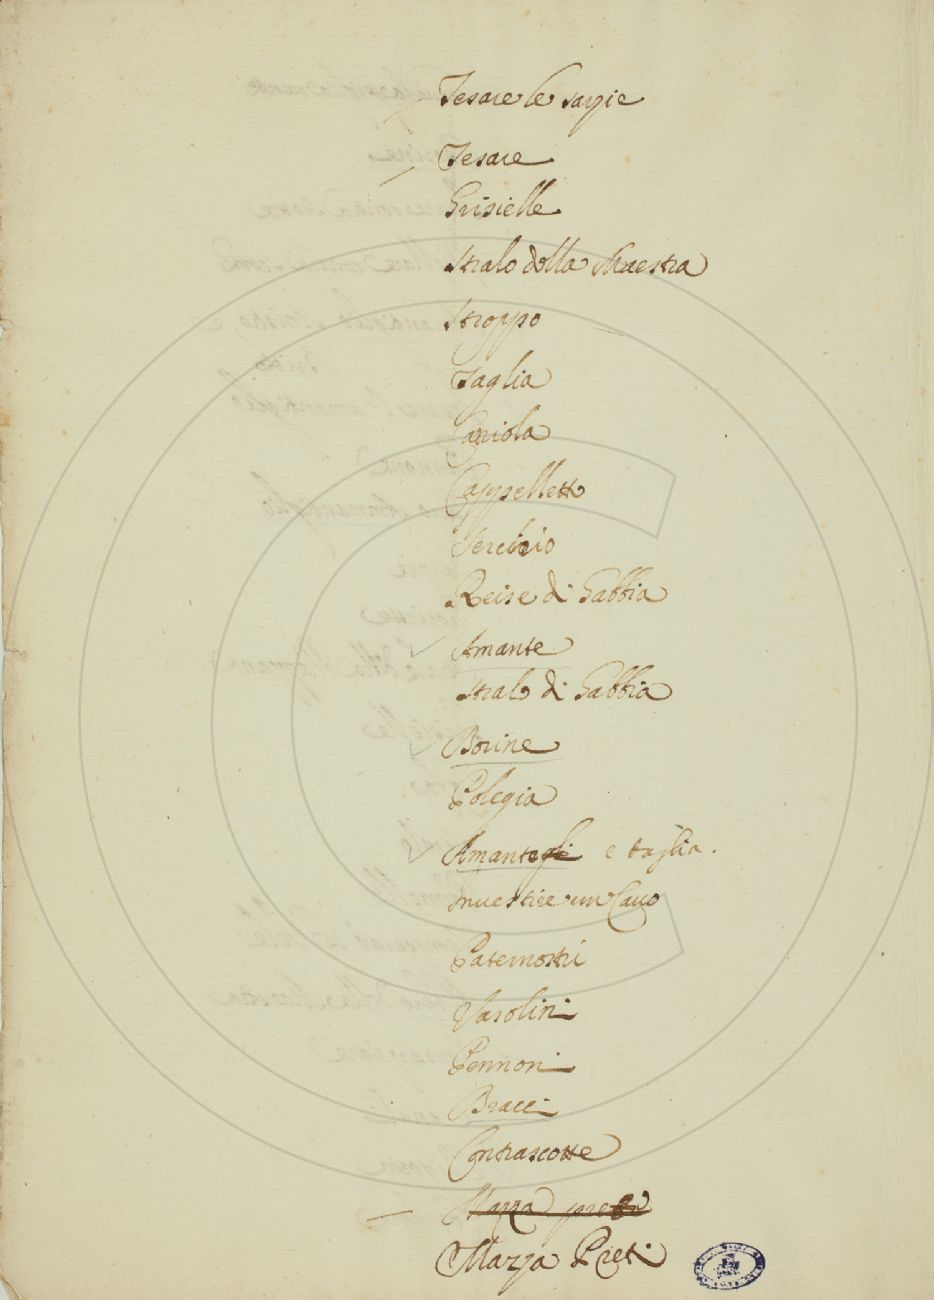 Tesare le sarzie
Tesare
Grisielle
Stralo della Maestra
Stroppo
Taglia
Cariola
Cappelletto
Serchio
Reise di Gabbia
Amante
Stralo di Gabbia
Borine
Polegia
Amantegli e taglia.
Investire un Cavo
Paternostri
Vasolini
Pennoni
Bracci
Contrascotte
Mazza preti
Mazza Preti